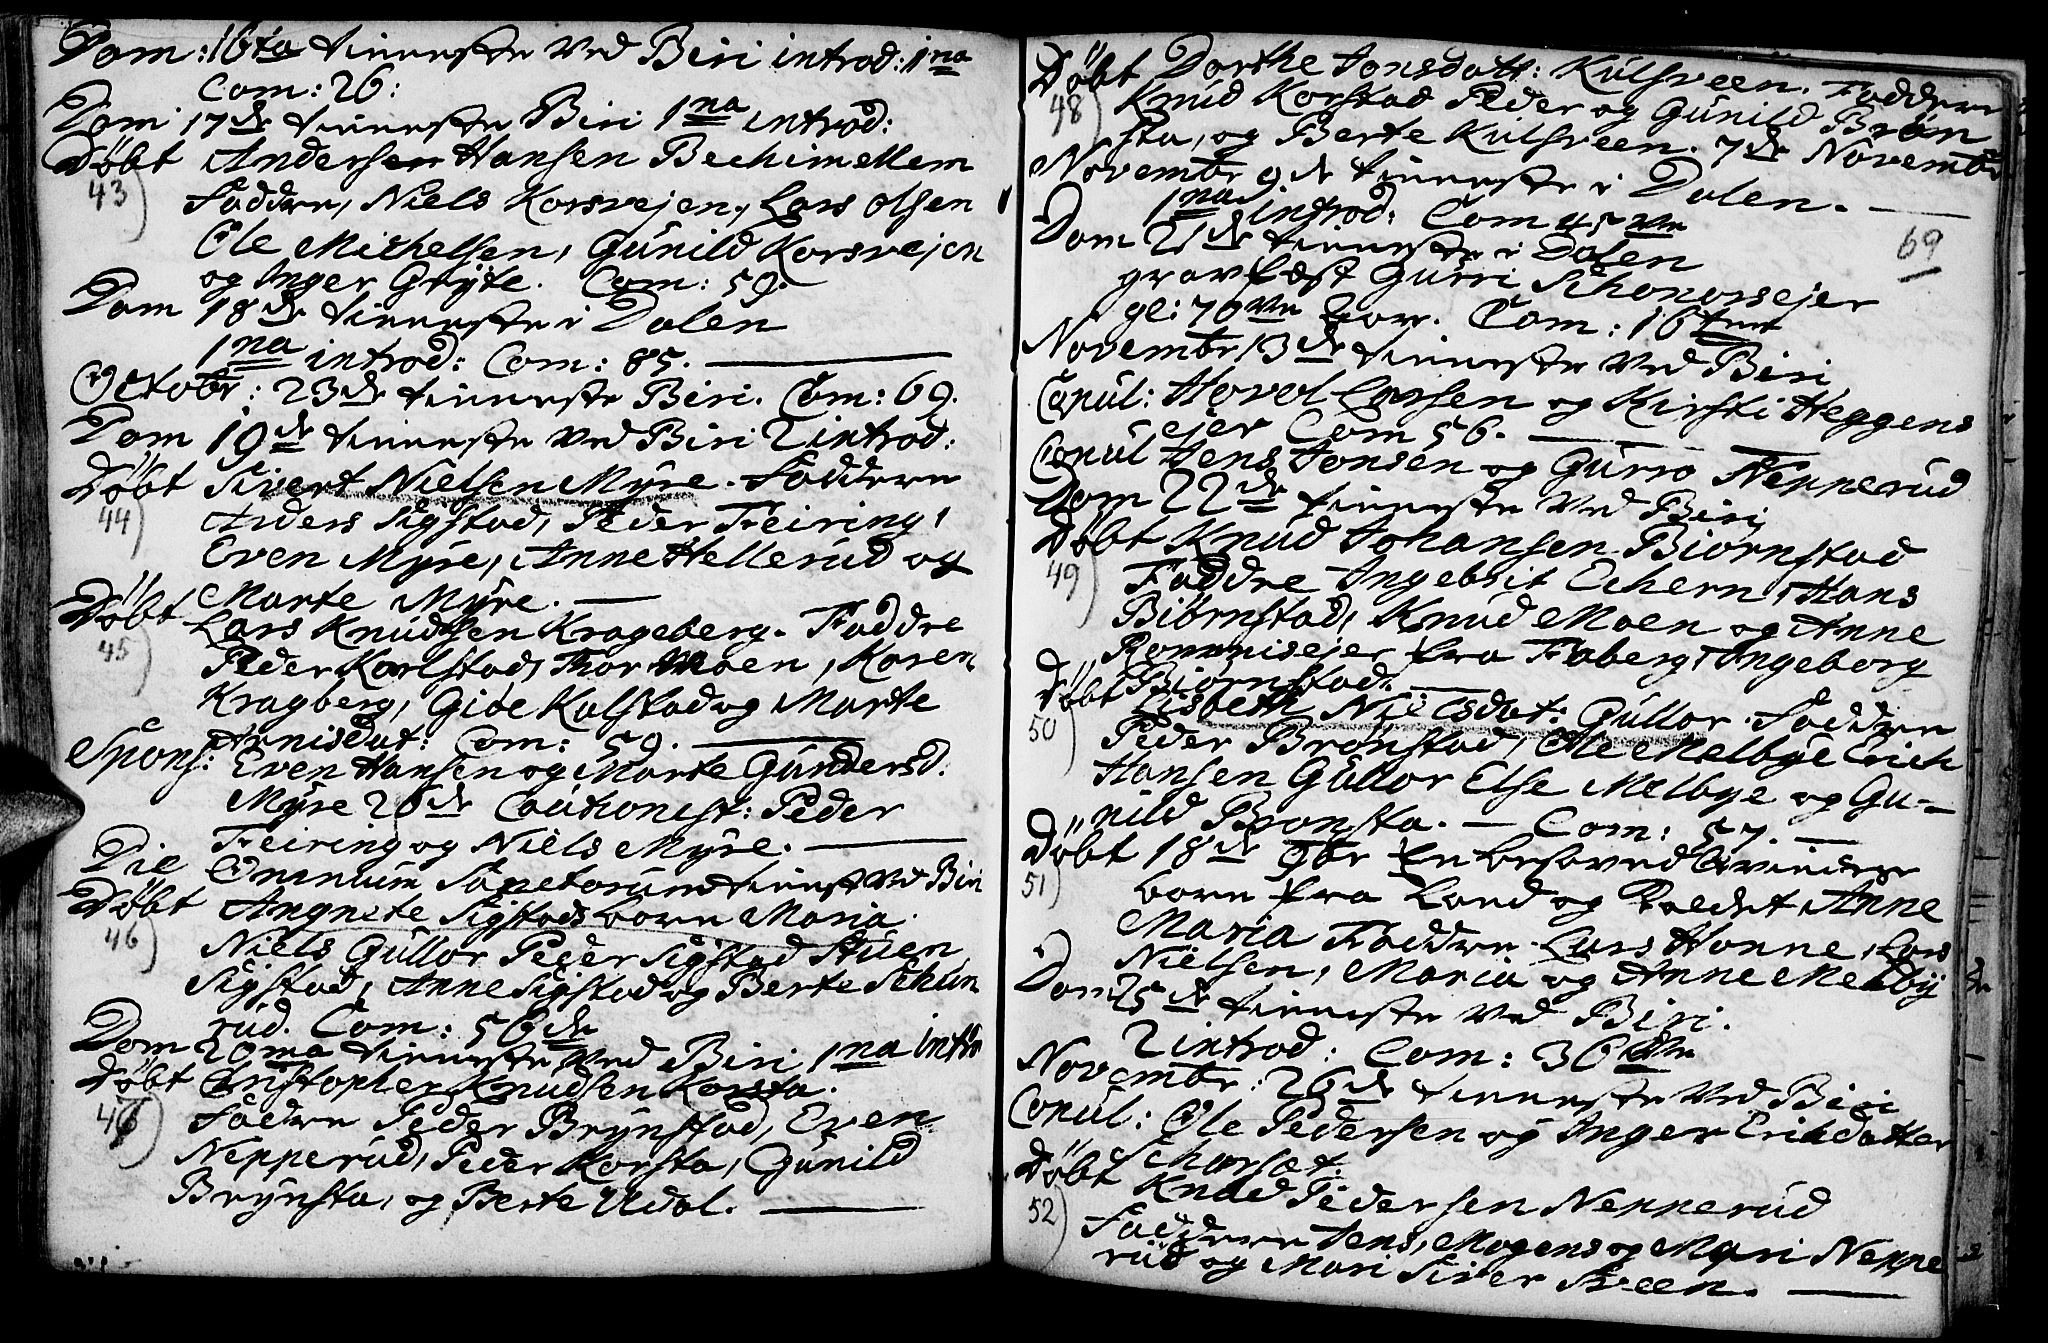 Dom: 16ta tienneste Ved Biri introd: 1na
Com: 26:
Dom 17de tienneste Biri 1na introd:
Döbt Andersen Hansen Bechimellem
43) Faddere, Niels Korsvejen, Lars Olsen
Ole Michelsen, Gúnild Korsvejen
og Inger Gryte. Com: 59.
Dom 18de tienneste i Dalen
1na introd: Com: 85.
Octobr: 23de tienneste Biri. Com: 69.
Dom 19de tienneste Ved Biri 2 introd:
Döbt Sivert Nielsen Myre. Faddere
44) Anders Sigstad, Peder Feiring,
Even Myre, Anne Hellerúd og
Marte Myre.
Döbt Lars Knúdsen Krageberg. Faddre
45) Peder Karlstad, Thor Moen, Karen
Kragberg, Gide Kalstad og Marte
Arnisdat: Com: 59.
Spons: Even Hansen og Marte Gúndersd:
Myre 26de Cautionist: Peder
Feiring og Niels Myre.
Die Omnium Sanctorum tienest Ved Biri
Döbt Angnete Sigstads barn Maria
46) Niels Gúllor Peder Sigstad Stúen
Sigstad, Anne Sigstad og Berte Schún
rúd. Com: 56de
Dom 20ma tienneste Ved Biri 1na intro
Döbt Christopher Knúdsen Korsta.
47) Faddre Peder Brynstad, Even
Nepperúd, Peder Korsta, Gúnild
Brynsta, og Berte Udal.
Döbt Dorthe Jonsdatt: Kúlsveen. Faddere
48) Knúd Korstad Peder og Gúnild Brön
sta, og Berte Kúlsveen. 7de Novembr
Novembr 9de tienneste i Dalen.
1na introd: Com 45ve
69
Dom 21de tienneste i Dalen
gravfæst Gúrri Schonorsejer
gl: 70ve aar. Com: 16ten
Novembr 13de tienneste Ved Biri
Copúl: Hovel Larsen og Kirsti Heggens
ejer Com 56.
Copúl Jens Jonsen og Gúrro Nepperúd
Dom 22de tienneste Ved Biri
Döbt Knúd Johansen Biörnstad
49) Faddre Ingebrit Echern, Hans
Biörnstad, Knúd Moen og Anne
Rommisejer fra Faberg, Ingeborg
Biörnstad.
Döbt Lisbeth Nielsdat: Gúllor. Faddere
50) Peder Brönstad, Ole Melbye Erich
Hansen Gúllor Else Melbye og Gú-
nild Bronsta. — Com: 57.
Döbt 18de 9br En besovred qvindes
51) barn fra Land og kaldet Anne
Maria Faddere. Lars Honne, Lars
Nielsen, Maria og Anne Melby
Dom 25de tienneste Ved Biri.
2 introd: Com: 36
Novembr: 26de tienneste Ved Biri
Copúl: Ole Pedersen og Inger Erichdatter
Döbt Knúd Pedersen Nepperúd
52) Faddere Jens, Mogens og Mari Neppe
rúd og Mari Siversveen.